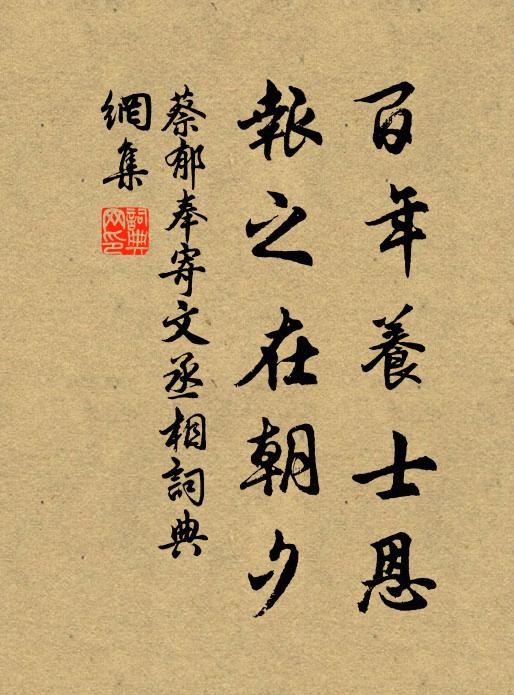 百年養士恩
報之在朝夕
蔡郁奉寄文丞相詞典
網集
詞典
网印